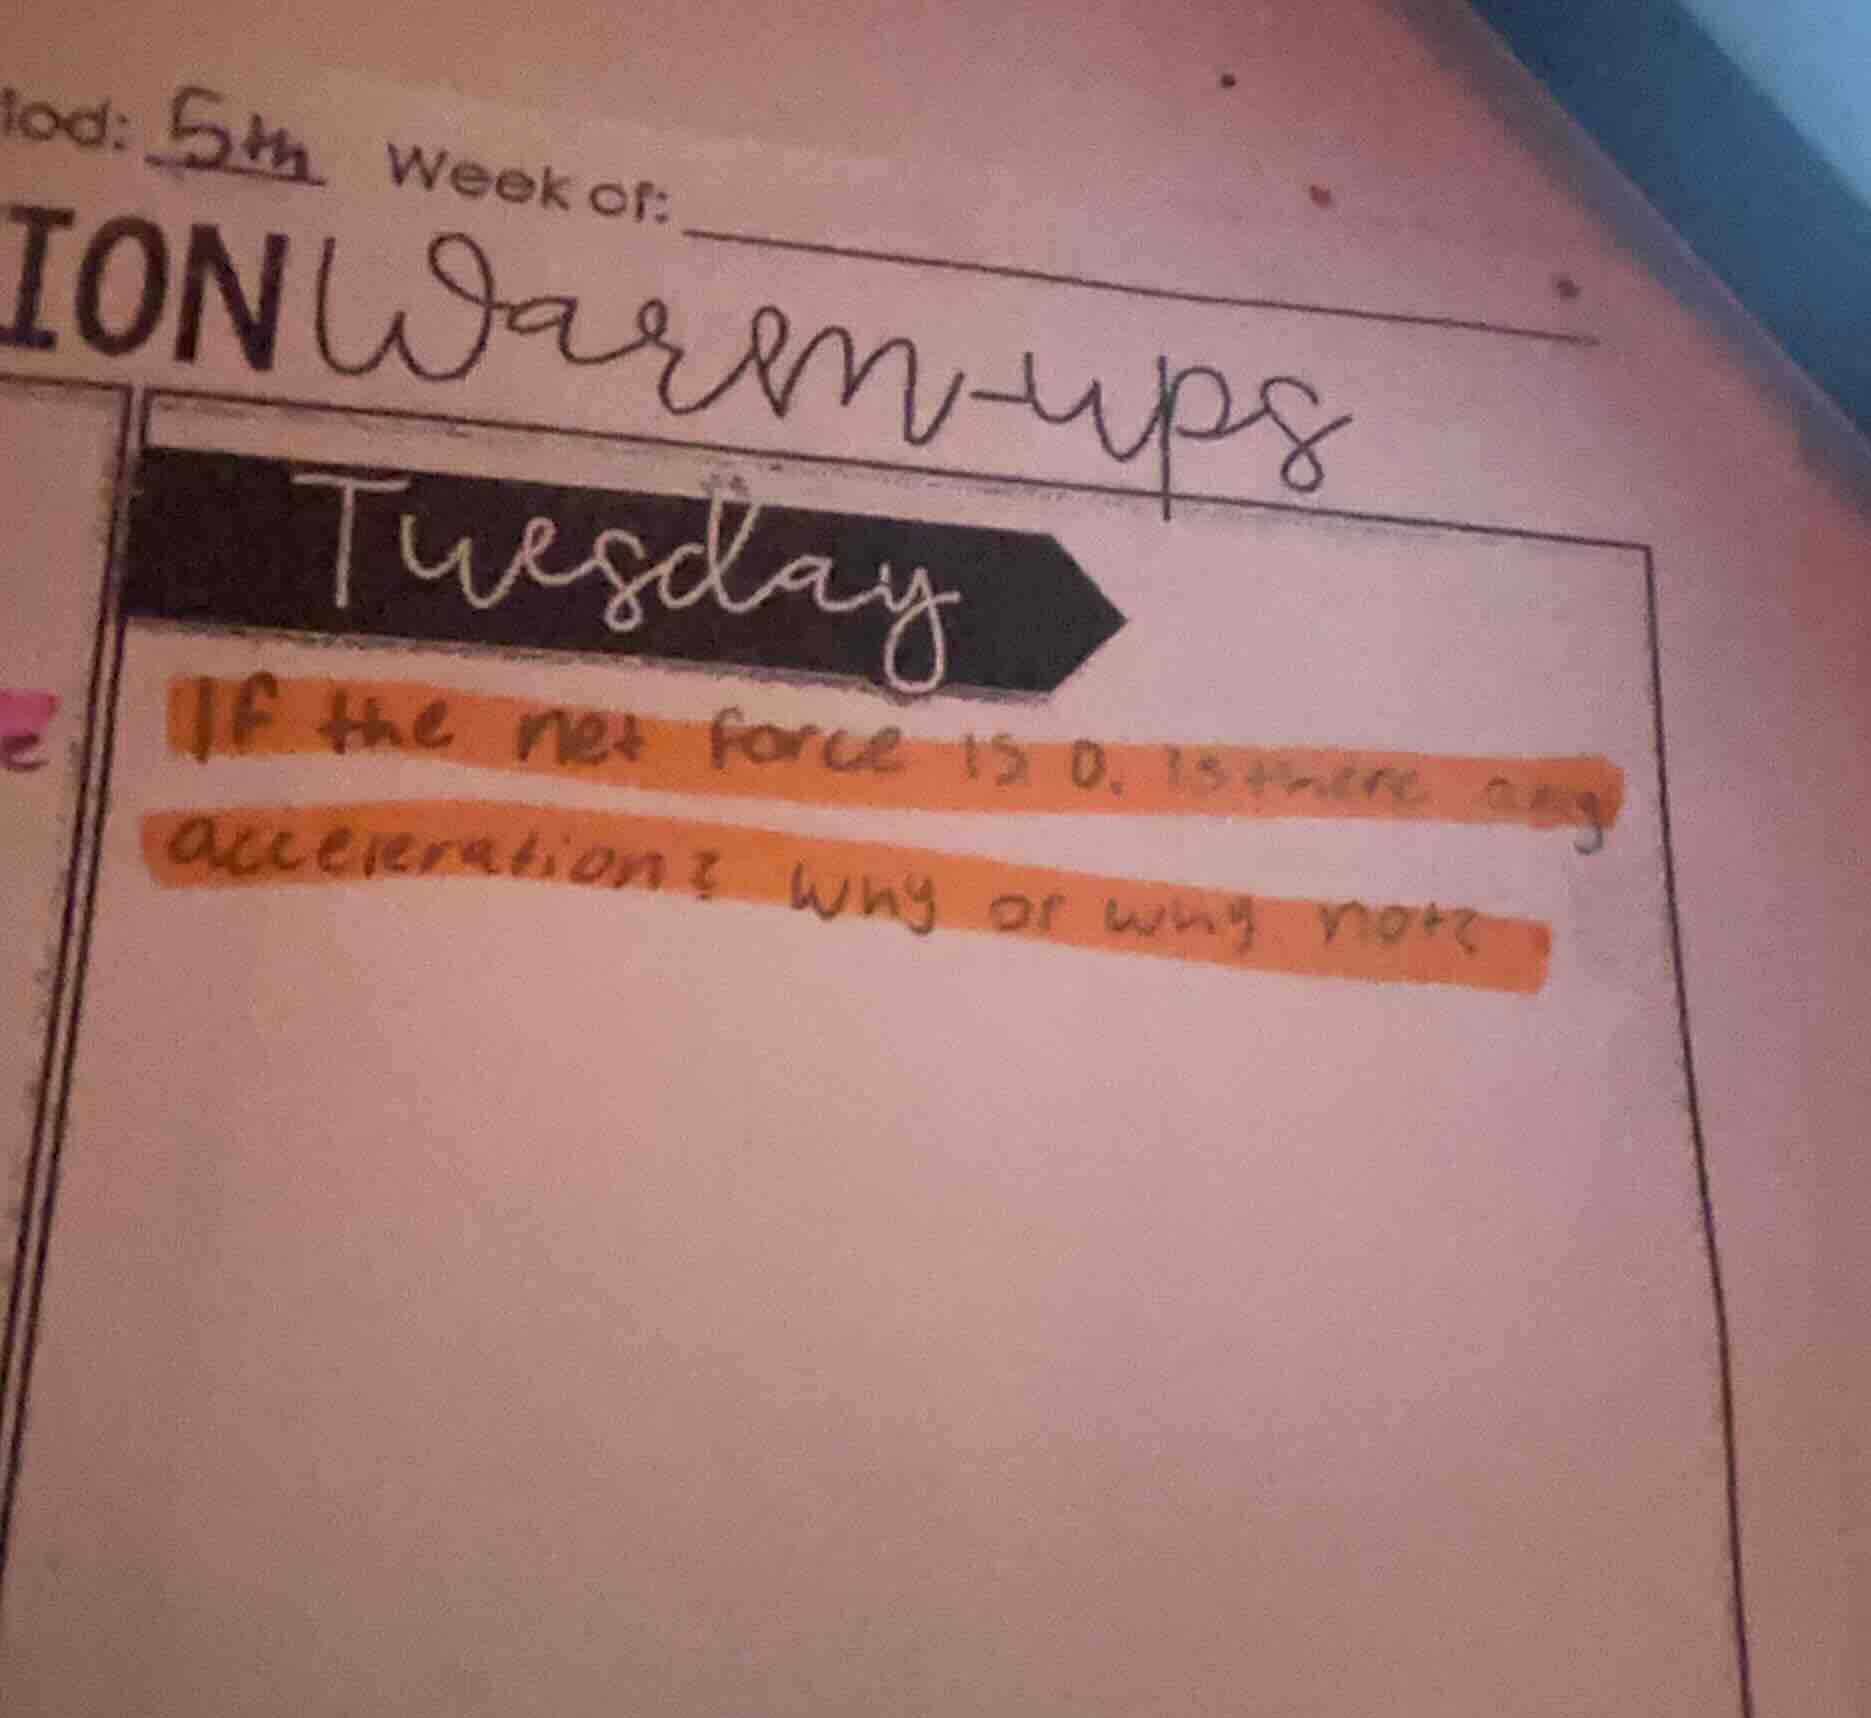 iod: 5th Week of:
ION Warm-ups
Tuesday
e
If the net force is 0, is there any
acceleration? Why or why not?